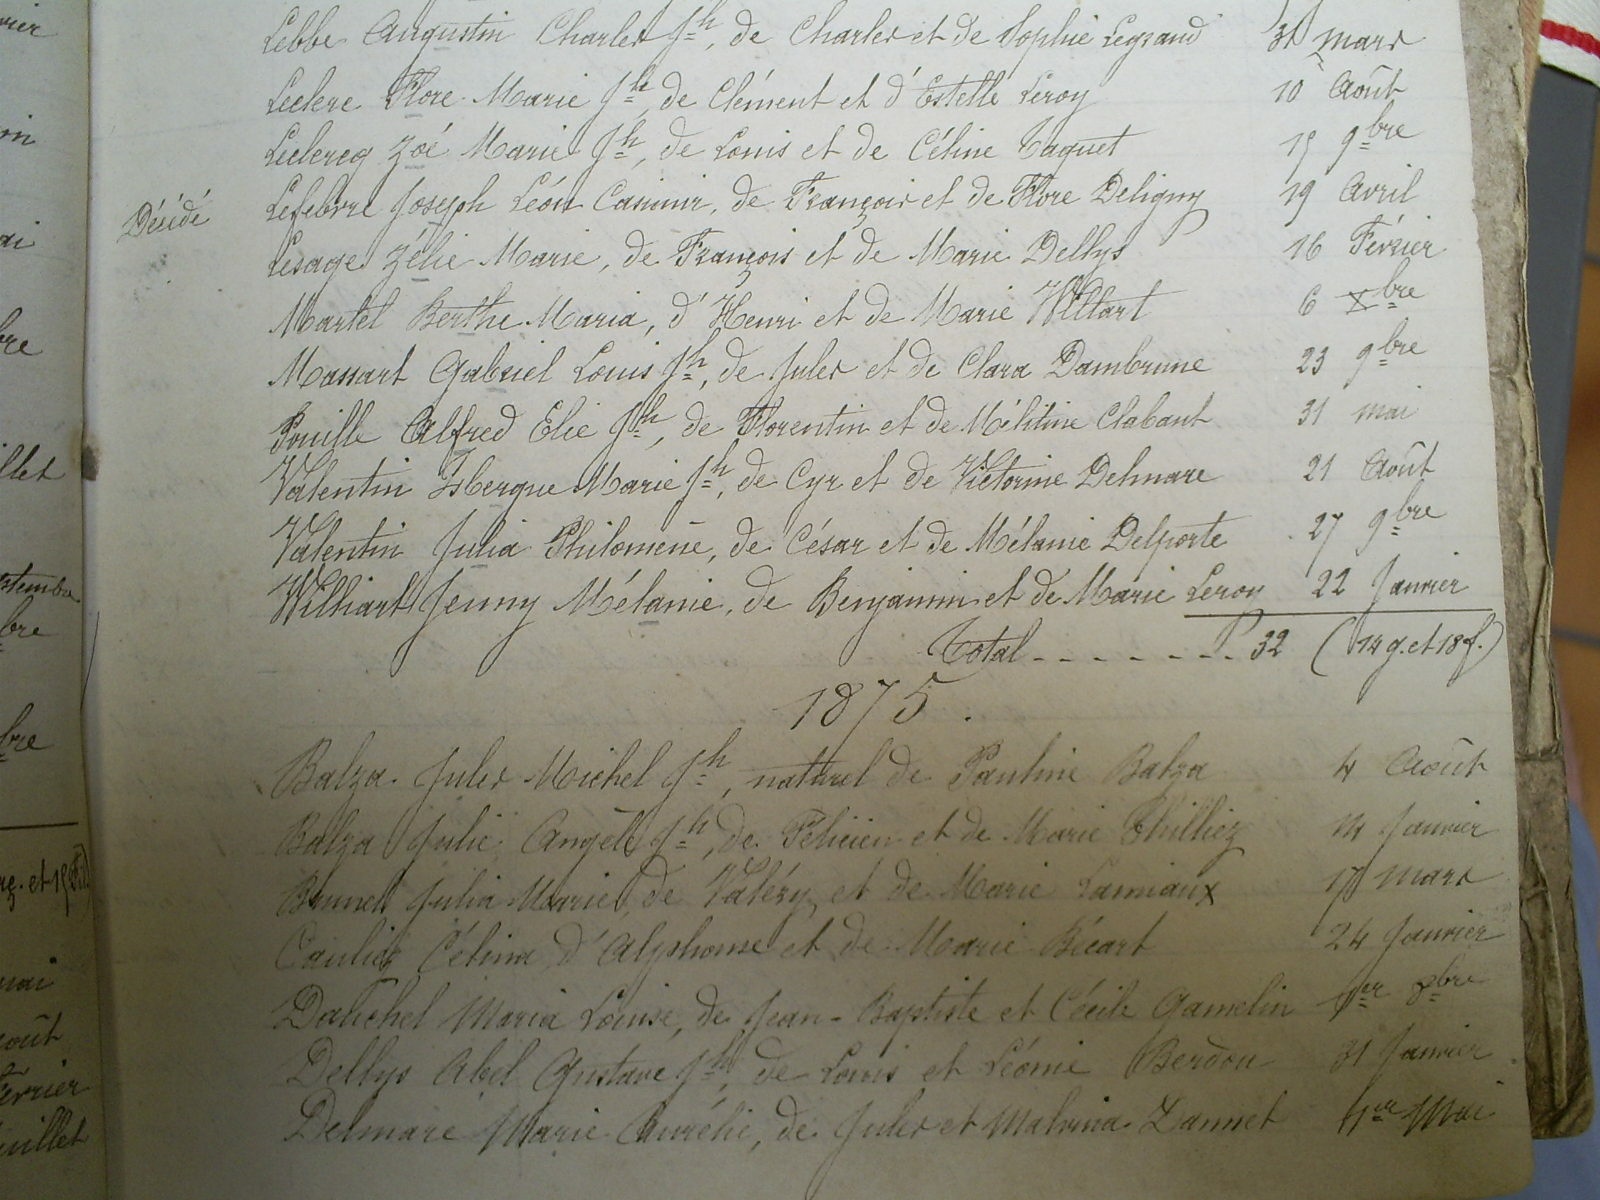 Lebbe Augustin Charles Jh, de Charles et de Sophie Legrand 31 mars
Leclerc Flore Marie Jh, de Clément et d'Estelle Leroy 10 Août
Leclercq Zoé Marie Jh, de Louis et de Céline Taquet 15 9bre
Décédé Lefebvre Joseph Léon Casimir, de François et de Flore Deligny 19 Avril
Lesage Zélie Marie, de François et de Marie Dellys 16 Février
Martel Berthe Maria, d'Henri et de Marie Willart 6 Xbre
Massart Gabriel Louis Jh, de Jules et de Clara Dambrune 23 9bre
Pouille Alfred Elie Jh, de Florentin et de Clabaut 31 mai
Valentin Isbergue Marie Jh, de Cyr et de Victorine Delmare 21 Août
Valentin Julia Philomène, de César et de Mélanie Delporte 27 9bre
Willart Jenny Mélanie, de Benjamin et de Marie Leroy 22 Janvier
Total 32 (14 g. et 18 f.)
1875.
Balza Jules Michel Jh, naturel de Pauline Balza 4 Août
Balza Julie Angèle Jh, de Félicien et de Marie Thilliez 14 Janvier
Brunel Julia Marie, de Valéry et de Marie Lamiaux 17 mars
Caulier Célina, d'Alphonse et de Marie Bécart 24 Janvier
Maria Louise, de Jean-Baptiste et Cécile Gamelin 1er 8bre
Dellys Abel Gustave Jh, de Louis et Léonie Berdou 31 Janvier
Delmare Marie Aurélie, de Jules et Malvina Lannet Mai